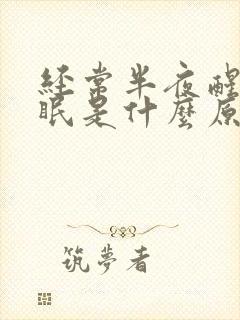 經常半夜醒
眠是什麼原
筑夢者